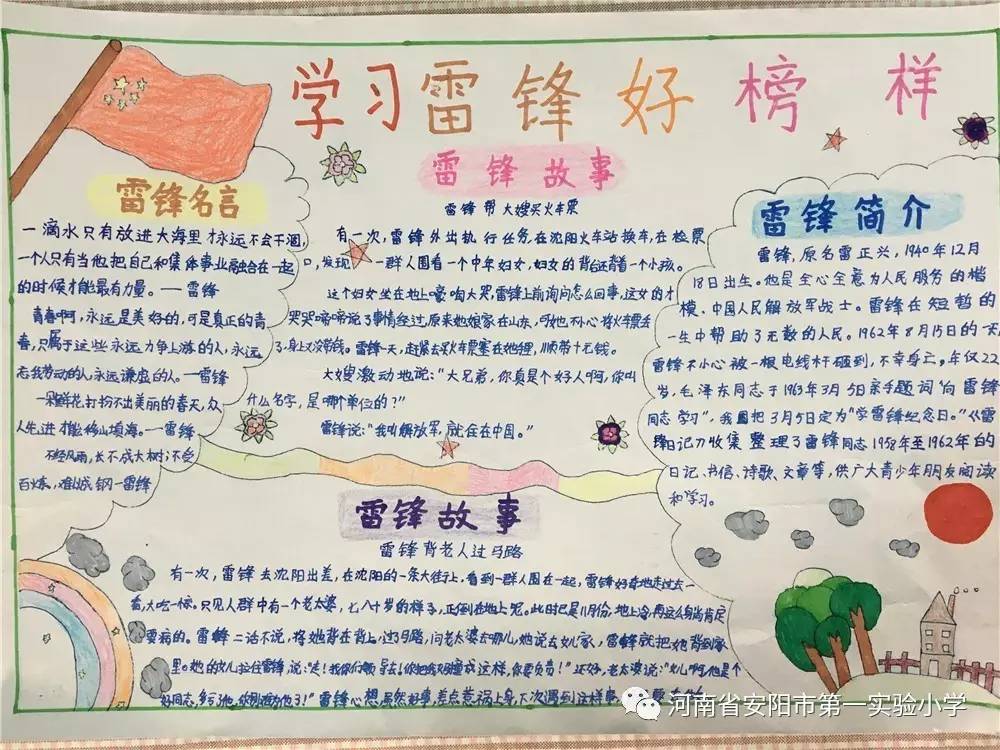 学习雷锋好榜样
雷锋名言
一滴水只有放进大海里才永远不会干涸,
一个人只有当他把自己和集体事业融合在一起
的时候才能最有力量。一雷锋
青春啊,永远是美好的,可是真正的青
春,只属于这些永远力争上游的人,永远
忘我劳动的人,永远谦虚的人。一雷锋
一朵鲜花打扮不出美丽的春天,众
人先进才能移山填海。一雷锋
不经风雨,长不成大树;不经
百炼,难以成钢一雷锋
雷锋故事
雷锋帮大嫂买火车票
有一次,雷锋外出执行任务,在沈阳火车站换车,在检票
口,发现一群人围看一个中年妇女,妇女的背还背着一个小孩。
这个妇女坐在地上嚎啕大哭,雷锋上前询问怎么回事,这女的才
哭哭啼啼说了事情经过,原来她娘家在山东,可她不小心将火车票丢
了,身上又没带钱。雷锋一天,赶紧去买火车票塞在她手里,顺带十元钱。
大嫂激动地说:“大兄弟,你真是个好人啊,你叫
什么名字,是哪个单位的?”
雷锋说:“我叫解放军,就住在中国。”
雷锋简介
雷锋,原名雷正兴,1940年12月
18日出生。他是全心全意为人民服务的楷
模、中国人民解放军战士。雷锋在短暂的
一生中帮助了无数的人民。1962年8月15日的一天
雷锋不小心被一根电线杆砸到,不幸身亡,年仅22
岁,毛泽东同志于1963年3月5日亲手题词“向雷锋
同志学习”,我国把3月5日定为“学雷锋纪念日。”《雷
锋日记》收集整理了雷锋同志1958年至1962年的
日记、书信、诗歌、文章等,供广大青少年朋友阅读
和学习。
雷锋故事
雷锋背老人过马路
有一次,雷锋去沈阳出差,在沈阳的一条大街上,看到一群人围在一起,雷锋好奇地走过去一
看,大吃一惊。只见人群中有一个老太婆,七八十岁的样子,正倒在地上哭。此时已是11月份,地上冷,再这么躺肯定
要病的。雷锋二话不说,将她背在背上,过马路,问老太婆去哪儿,她说去女儿家,雷锋就把她背到家
里。她的女儿拉住雷锋,说:“走!我们领导去!你把我妈撞成这样,你要负责!”还好,老太婆说:“女儿啊,他是个
好同志,多亏他,你别难为他了!”雷锋心想,虽然好事,差点惹祸上身,下次遇到这样事
河南省安阳市第一实验小学